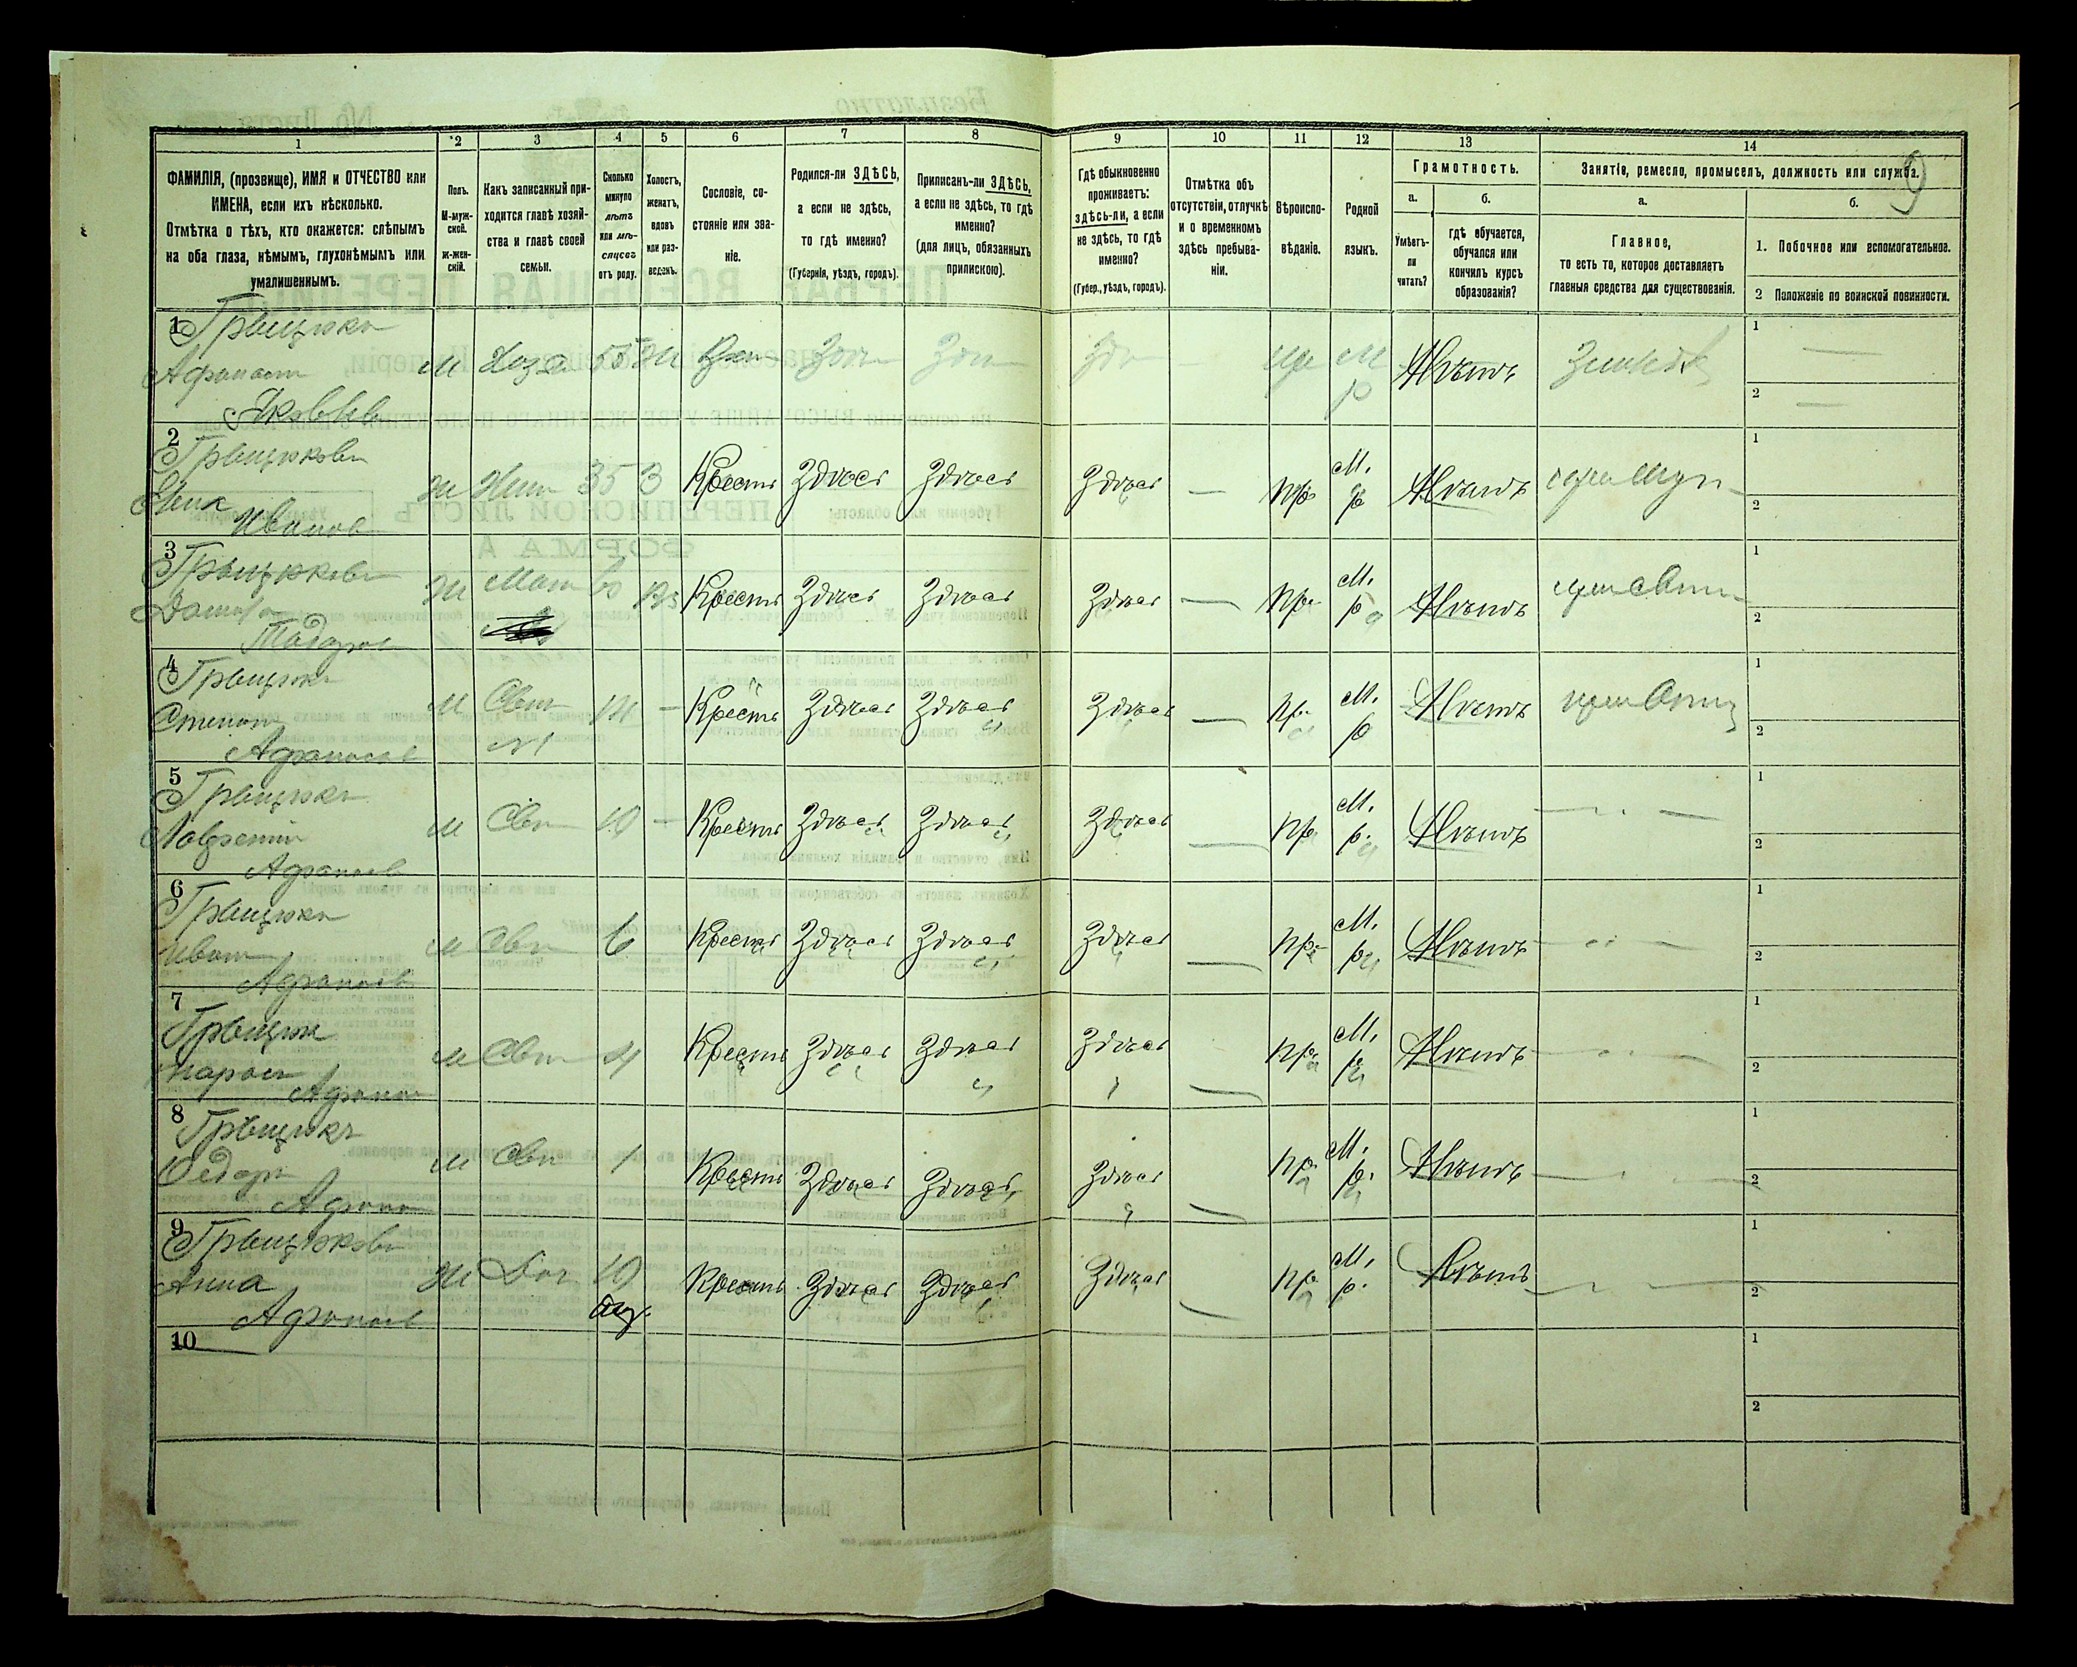 9
1 2 3 4 5 6 7 8 9 10 11 12 13 14
ФАМИЛІЯ, (прозвище), ИМЯ и ОТЧЕСТВО или
ИМЕНА, если ихъ нѣсколько.
Отмѣтка о тѣхъ, кто окажется: слѣпымъ
на оба глаза, нѣмымъ, глухонѣмымъ или
умалишеннымъ.
Полъ.
М-муж-
ской.
Ж-жен-
скій.
Какъ записанный при-
ходится главѣ хозяй-
ства и главѣ своей
семьи.
Сколько
минуло
лѣтъ
или мѣ-
сяцевъ
отъ роду.
Холостъ,
женатъ,
вдовъ
или раз-
веденъ.
Сословіе, со-
стояніе или зва-
ніе.
Родился-ли ЗДѢСЬ,
а если не здѣсь,
то гдѣ именно?
(Губернія, уѣздъ, городъ).
Приписанъ-ли ЗДѢСЬ,
а если не здѣсь, то гдѣ
именно?
(для лицъ, обязанныхъ
припискою).
Гдѣ обыкновенно
проживаетъ:
здѣсь-ли, а если
не здѣсь, то гдѣ
именно?
(Губер., уѣздъ, городъ).
Отмѣтка объ
отсутствіи, отлучкѣ
и о временномъ
здѣсь пребыва-
ніи.
Вѣроиспо-
вѣданіе.
Родной
языкъ.
Грамотность.
а.
Умѣетъ-
ли
читать?
б.
гдѣ обучается,
обучался или
кончилъ курсъ
образованія?
Занятіе, ремесло, промыселъ, должность или служба.
а.
Главное,
то есть то, которое доставляетъ
главныя средства для существованія.
б.
1. Побочное или вспомогательное.
2 Положеніе по воинской повинности.
1 Грыцюкъ
М Хоз 55 Ж М Нѣтъ 1
р 2
2 Грыцюкова
Ж Жена 35 З Крестъ Здѣсь Здѣсь Здѣсь — Пр М. р Нѣтъ при муж 1
Иванов 2
3 Грыцюкова
Ж Мат 60 Вд Крестъ Здѣсь Здѣсь Здѣсь — Пр М. р Нѣтъ 1
2
4 Грыцюкъ
Степанъ М Сын 14 — Крестъ Здѣсь Здѣсь Здѣсь — Пр М. р Нѣтъ 1
Афанасьев 2
5 Грыцюкъ
Лаврентій М Сын 10 — Крестъ Здѣсь Здѣсь Здѣсь — Пр М. р. Нѣтъ — „ — 1
Афанасьев 2
6 Грыцюкъ
Иванъ М Сын 6 Крестъ Здѣсь Здѣсь Здѣсь — Пр М. р Нѣтъ — „ — 1
Афанасьев 2
7 Грыцюк
М Сын 4 Крестъ Здѣсь Здѣсь Здѣсь — Пр М. р Нѣтъ — „ — 1
Афанас 2
8 Грыцюкъ
Федоръ М Сын 1 Крестъ Здѣсь Здѣсь Здѣсь — Пр М. р. Нѣтъ — „ — 1
Афанас 2
9 Грыцюкова
Анна Ж Доч 10 Крестъ Здѣсь Здѣсь Здѣсь — Пр М. р. Нѣтъ — „ — 1
Афанасьев 2
10 1
2